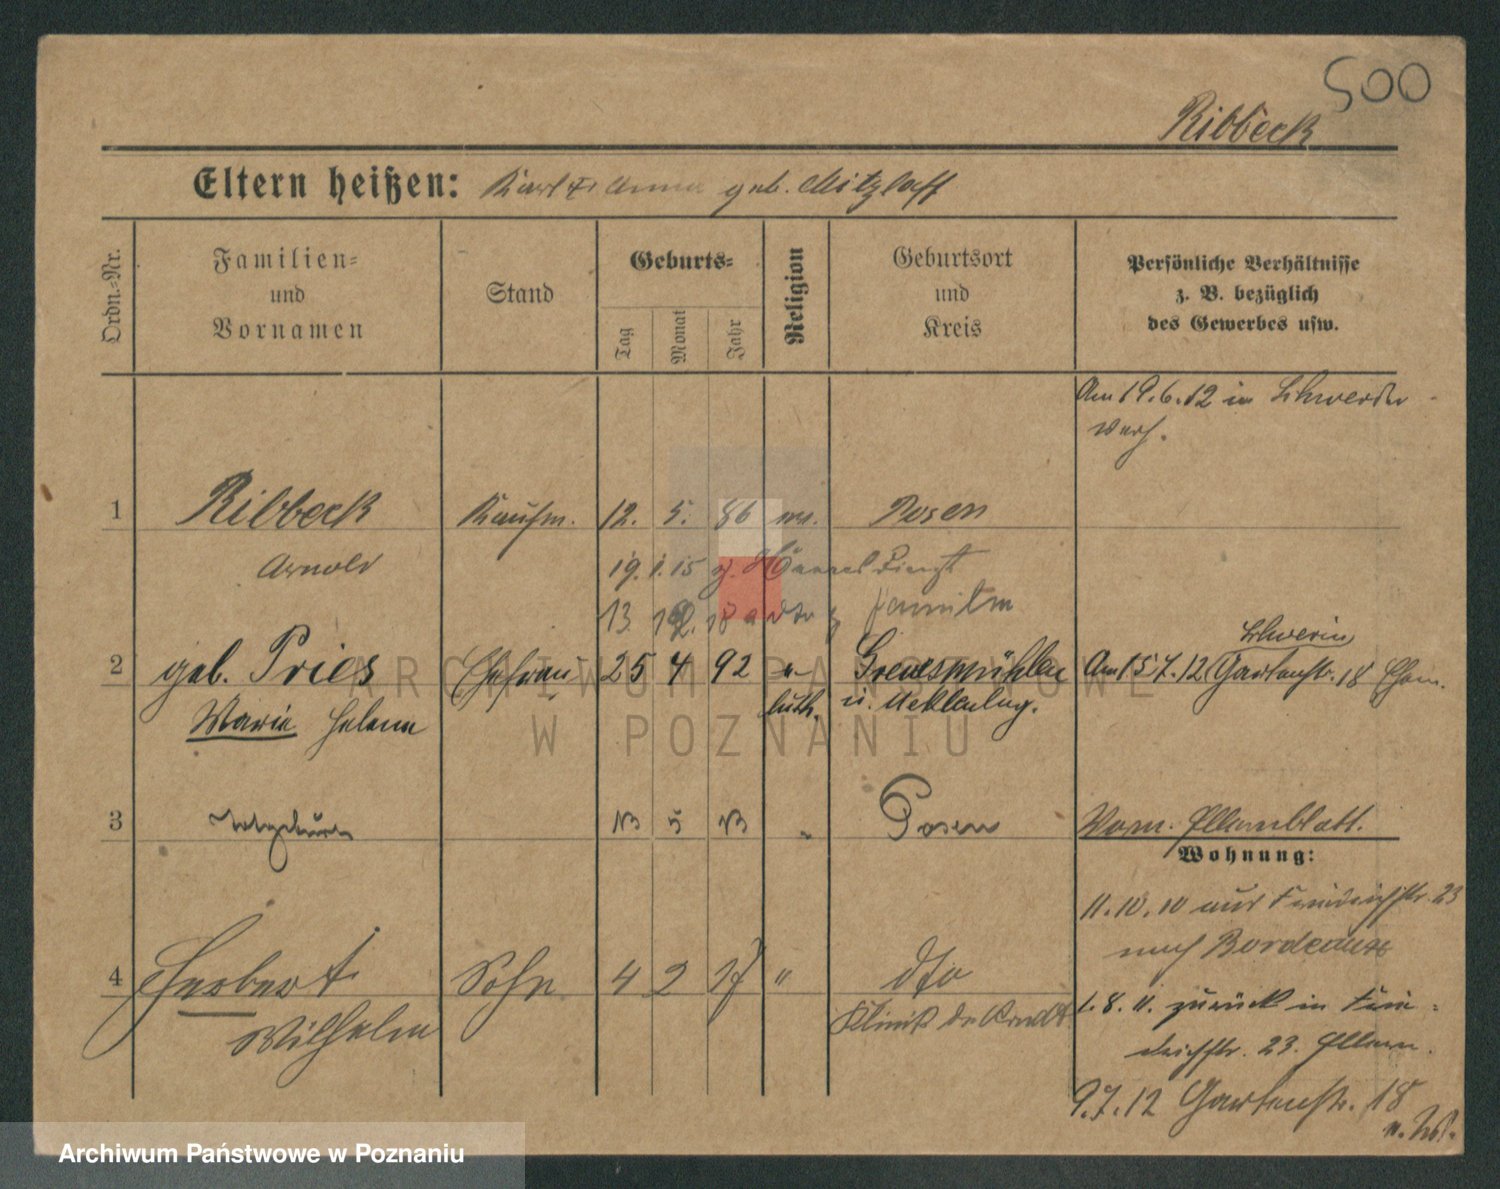 500
Ribbeck
Eltern heißen: Karl & Anna geb. Mitzlaff
Ordn.-Nr.
Familien- und Vornamen
Stand
Geburts-
Tag
Monat
Jahr
Religion
Geburtsort und Kreis
Persönliche Verhältnisse z. B. bezüglich des Gewerbes usw.
Am 19.6.12 in Schwerin
verh.
1 Ribbeck Kaufm. 12. 5. 86 ev. Posen
Arnold
19.1.15 z. Heeresdienst
13 12. 18 dto z Familie
2 geb. Pries Ehefrau 25 4 92 ev. Grevesmühlen Am 15.7.12 Schwerin Gartenstr. 18 Ehem.
luth. i. Mecklenbg.
Marie Helene
3 Totgeburt 13 5 13 " Posen Vom. Elternblatt.
Wohnung:
11.10.10 aus Friedrichstr. 23
nach Bordeaux
4 Herbert Sohn 4 2 17 " dto
Wilhelm
Klinik
1.8.11. zurück in Frie-
drichstr. 23. Eltern.
9.7.12 Gartenstr. 18
ARCHIWUM PAŃSTWOWE
W POZNANIU
Archiwum Państwowe w Poznaniu